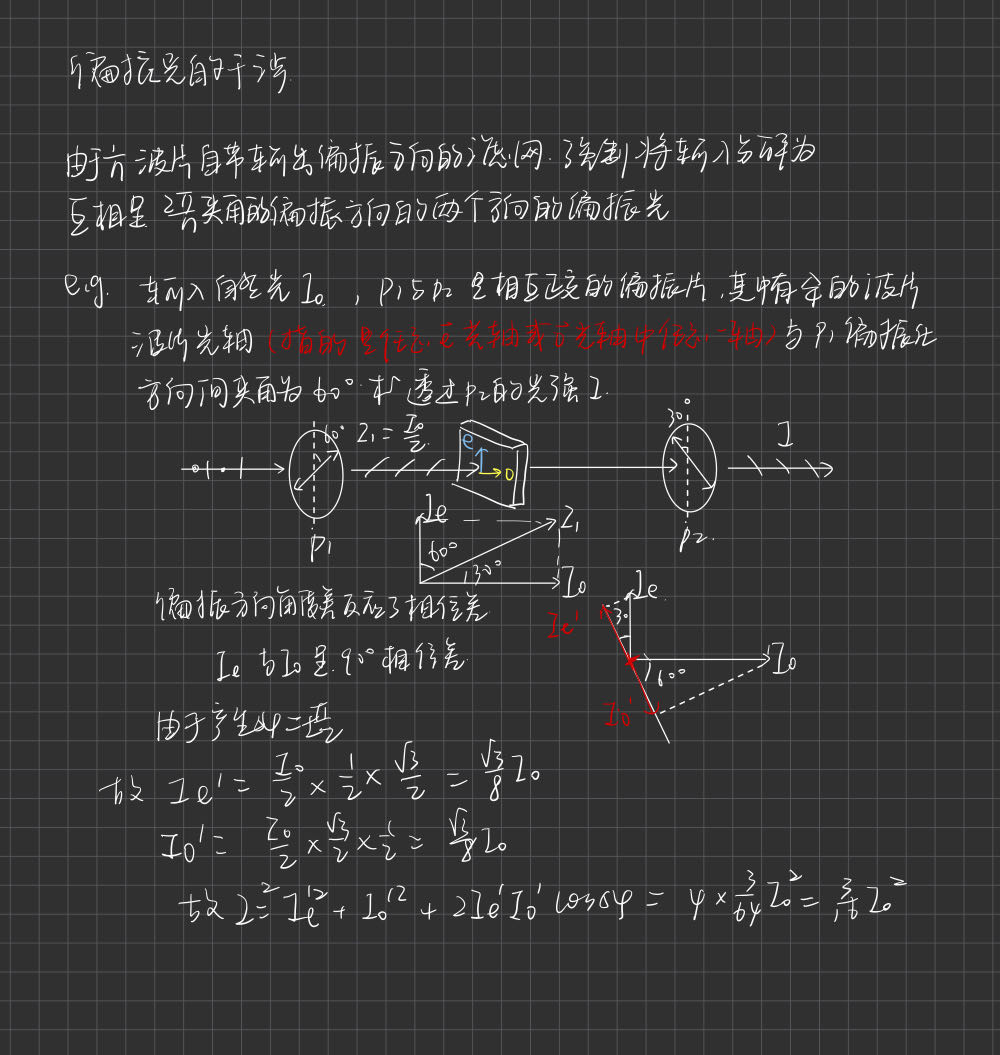 偏振光的干涉
由于六波片自带输出偏振方向的 强制将输入 为
互相呈 夹角的偏振方向的两个方向的偏振光
e.g. 输入自然光 I₀ , P₁与P₂是相互正交的偏振片,其中有 的波片
光轴 (指的是任意 光轴 光轴中任意一轴) 与 P₁ 偏振化
方向间夹角为 60° 求 透过P₂的光强 I.
60° I₁ = I₀/2 e o 30° I
P₁ P₂
Ie I₁ 60° 30° I₀
Ie Ie' 30 I₀ 60° I₀'
偏振方向角度差反应了相位差
Ie 与 I₀ 呈 90° 相位差
由于产生Δφ =
故 Ie' = I₀/2 × 1/2 × √3/2 = √3/8 I₀
I₀' = I₀/2 × √3/2 × 1/2 = √3/8 I₀
故 I² = Ie'² + I₀'² + 2Ie'I₀' cosΔφ = 4 × 3/64 I₀² = 3/16 I₀²